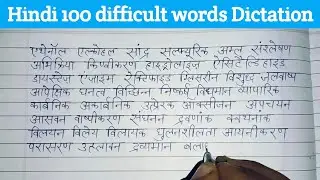 Hindi 100 difficult words Dictation
एथेनॉल एल्कोहल सांद्र सल्फ्यूरिक अम्ल संश्लेषण
अभिक्रिया किण्वीकरण हाइड्रोलाइज ऐसिटैल्डिहाइड
डायस्टेज एंजाइम रेक्टिफाइड ग्लिसरीन विशुद्ध जलवाष्प
आपेक्षिक घनत्व विच्छिन्न निष्कर्ष विद्यमान व्यापारिक
कार्बनिक अकार्बनिक उत्प्रेरक ऑक्सीजन अपचयन
आसवन वाष्पीकरण संघनन द्रवणांक क्वथनांक
विलयन विलेय विलायक घुलनशीलता आयनीकरण
परासरण उत्प्लावन द्रव्यमान बला